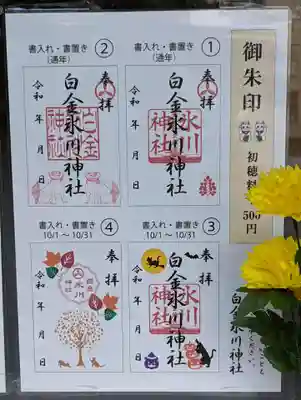 御朱印
初穂料
500円
書入れ・書置き
(通年)
①
奉拝
白金氷川神社
氷川神社
令和 年 月 日
書入れ・書置き
(通年)
②
奉拝
白金氷川神社
白金神社
令和 年 月 日
書入れ・書置き
10/1 〜 10/31
③
奉拝
白金氷川神社
氷川神社
令和 年 月 日
書入れ・書置き
10/1 〜 10/31
④
奉拝
白金
氷川
令和 年 月 日
白金氷川神社
ください。